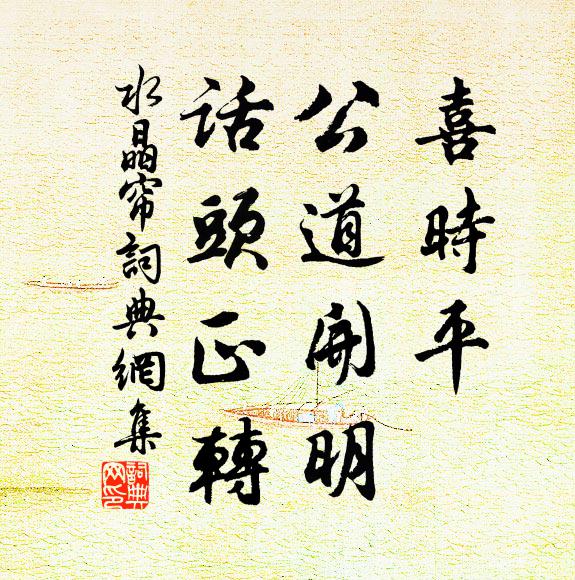 喜時平
公道開明
話頭正轉
水晶帘詞典網集
詞典
网印